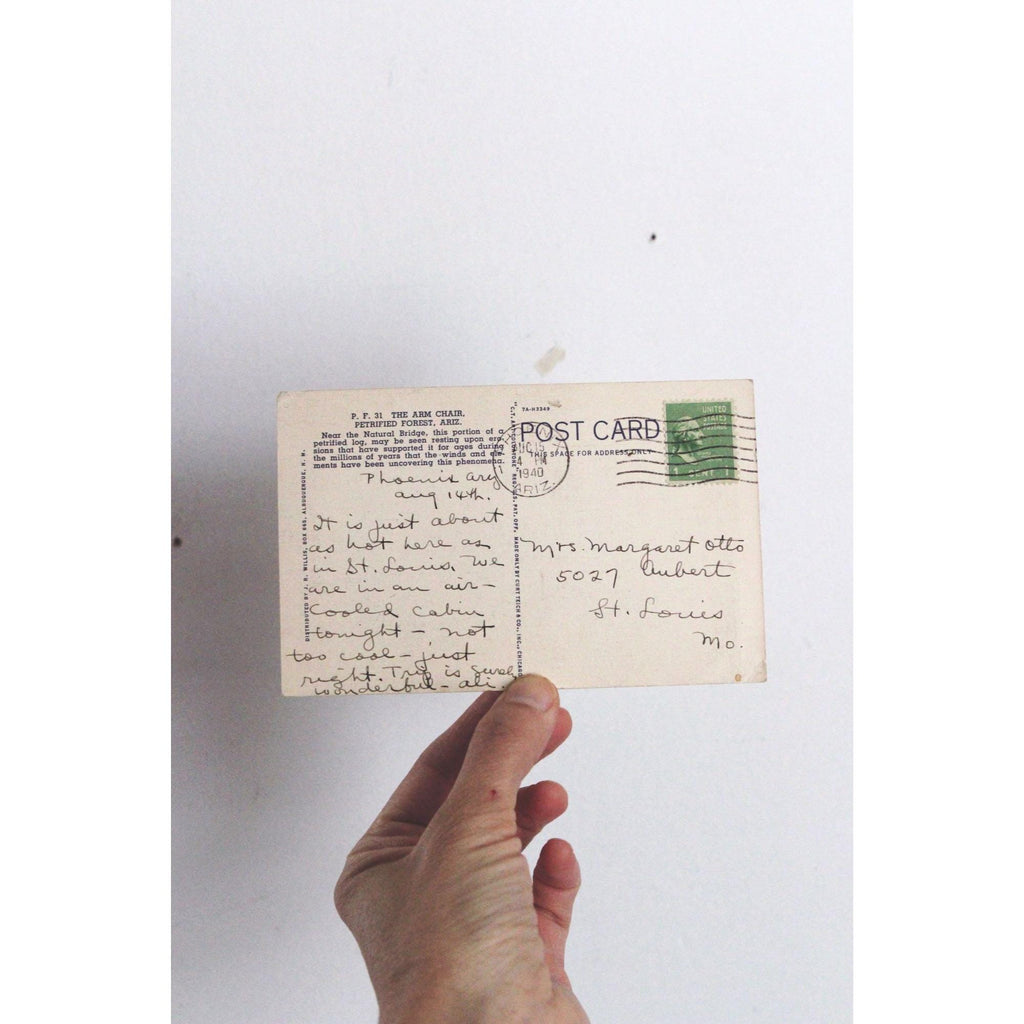 P. F. 31 THE ARM CHAIR,
PETRIFIED FOREST, ARIZ.
Near the Natural Bridge, this portion of a
petrified log, may be seen resting upon ero-
sions that have supported it for ages during
the millions of years that the winds and ele-
ments have been uncovering this phenomena.
Phoenix
Aug 14th.
It is just about
as hot here as
in St. Louis. We
are in an air-
cooled cabin
tonight - not
too cool - just
right. Trip is surely
wonderful -
DISTRIBUTED BY J. R. WILLIS, BOX 665, ALBUQUERQUE, N. M.
"C. T. ART-COLORTONE" REG. U.S. PAT. OFF. MADE ONLY BY CURT TEICH & CO., INC., CHICAGO
7A-H3249
POST CARD
THIS SPACE FOR ADDRESS ONLY
15
4 PM
1940
ARIZ.
UNITED
STATES
POSTAGE
1 CENT 1
Mrs. Margaret Otto
5027 Aubert
St. Louis
Mo.